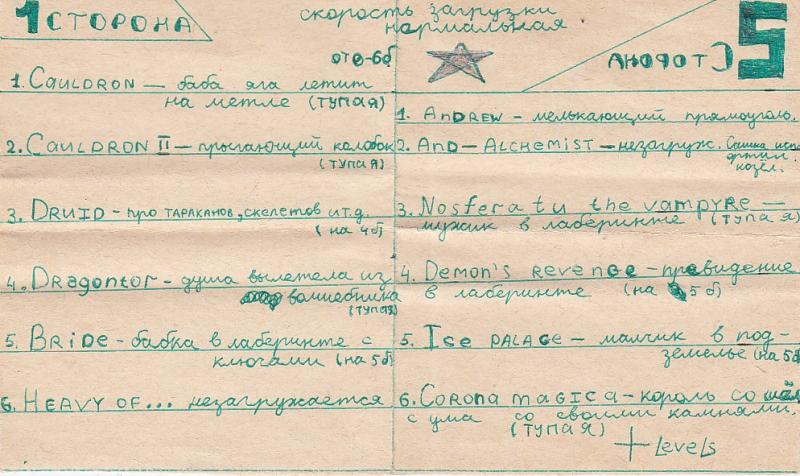 1 СТОРОНА
скорость загрузки
нормальная
5
СТОРОНА
ото-6б
1. CAULDRON — баба яга летит
на метле (ТУПАЯ)
2. CAULDRON II — прыгающий колобок
(ТУПАЯ)
3. DRUID - про ТАРАКАНОВ, скелетов и т.д.
( на 4б)
4. Dragontor - душа вылетела из
волшебника
(ТУПАЯ)
5. BRIDE - бабка в лаберинте с
ключами (на 5б)
6. HEAVY OF... незагружается
1. ANDREW - мелькающий прямоуголь.
2. AND - ALCHEMIST — незагруж. Сашка исп
ортил.
козёл.
3. Nosferatu the vampyre —
мужик в лаберинте (ТУПАЯ)
4. DEMON'S REVENGE - превидение
в лаберинте (на 5б)
5. ICE PALACE — малчик в под-
земелье (на 5б)
6. CORONA MAGICA - король сошёл
с ума со своими камнями.
(ТУПАЯ)
+ Levels